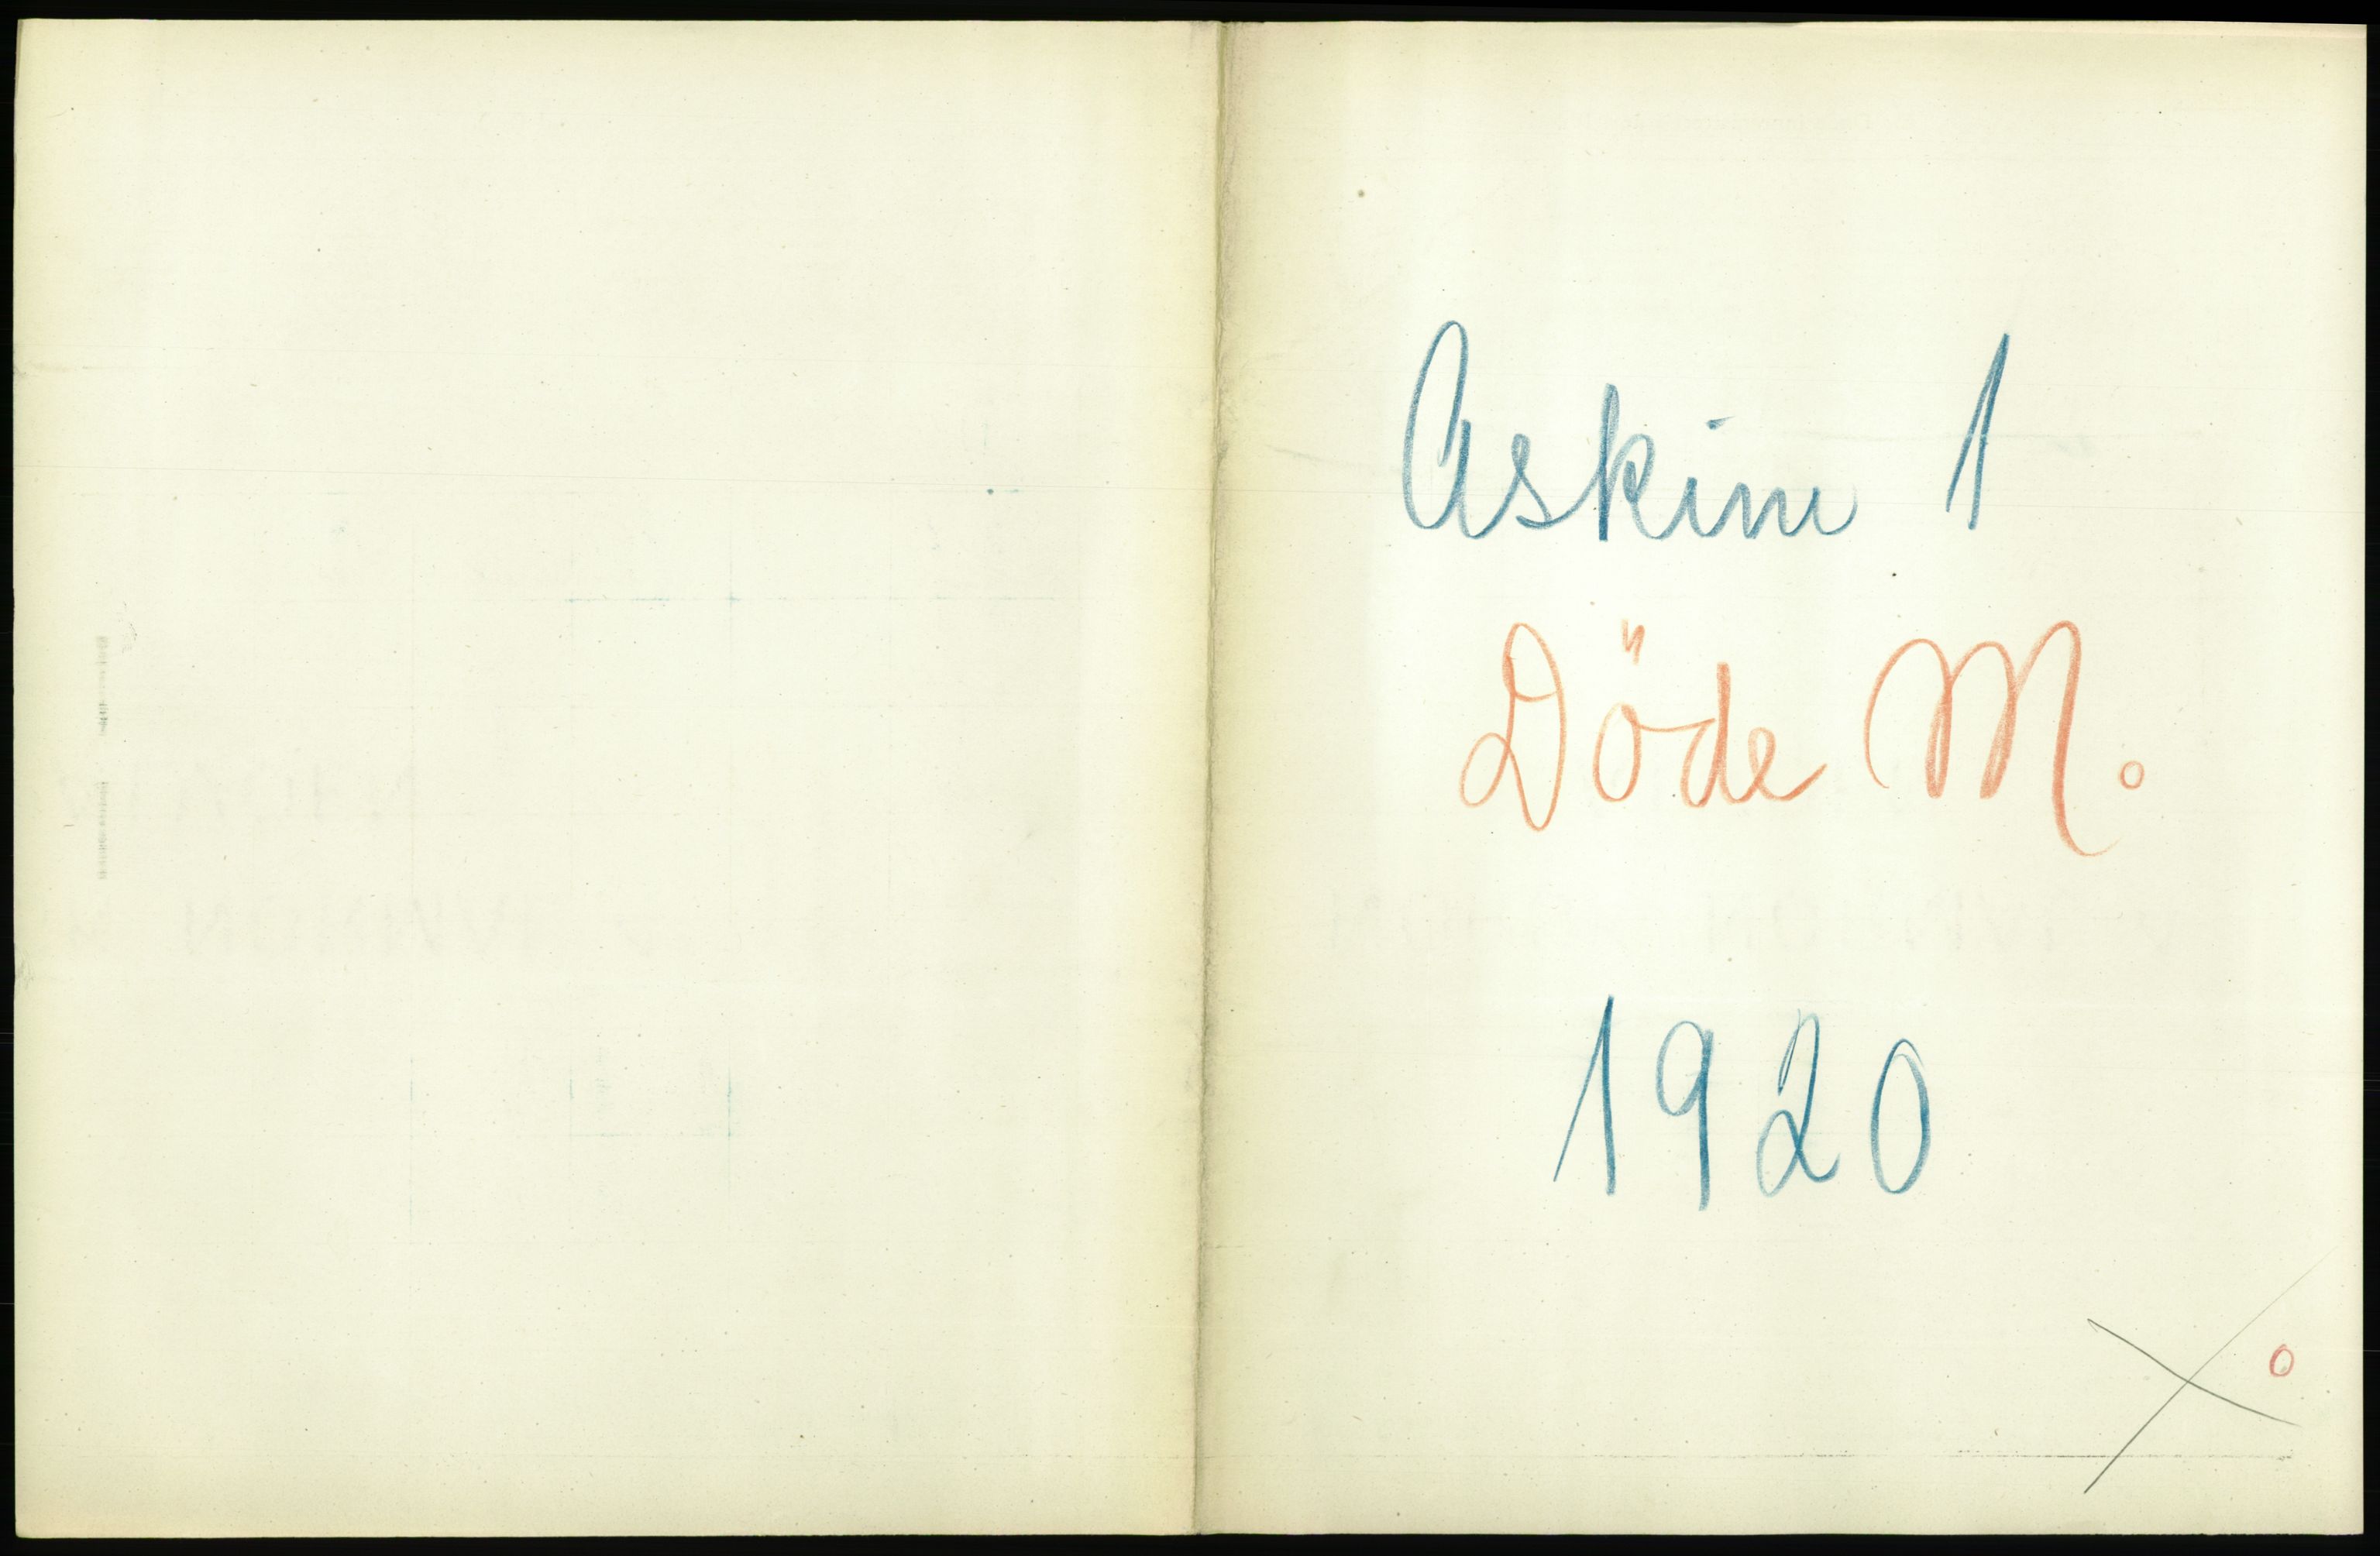 Askim 1
Döde M.
1920
0